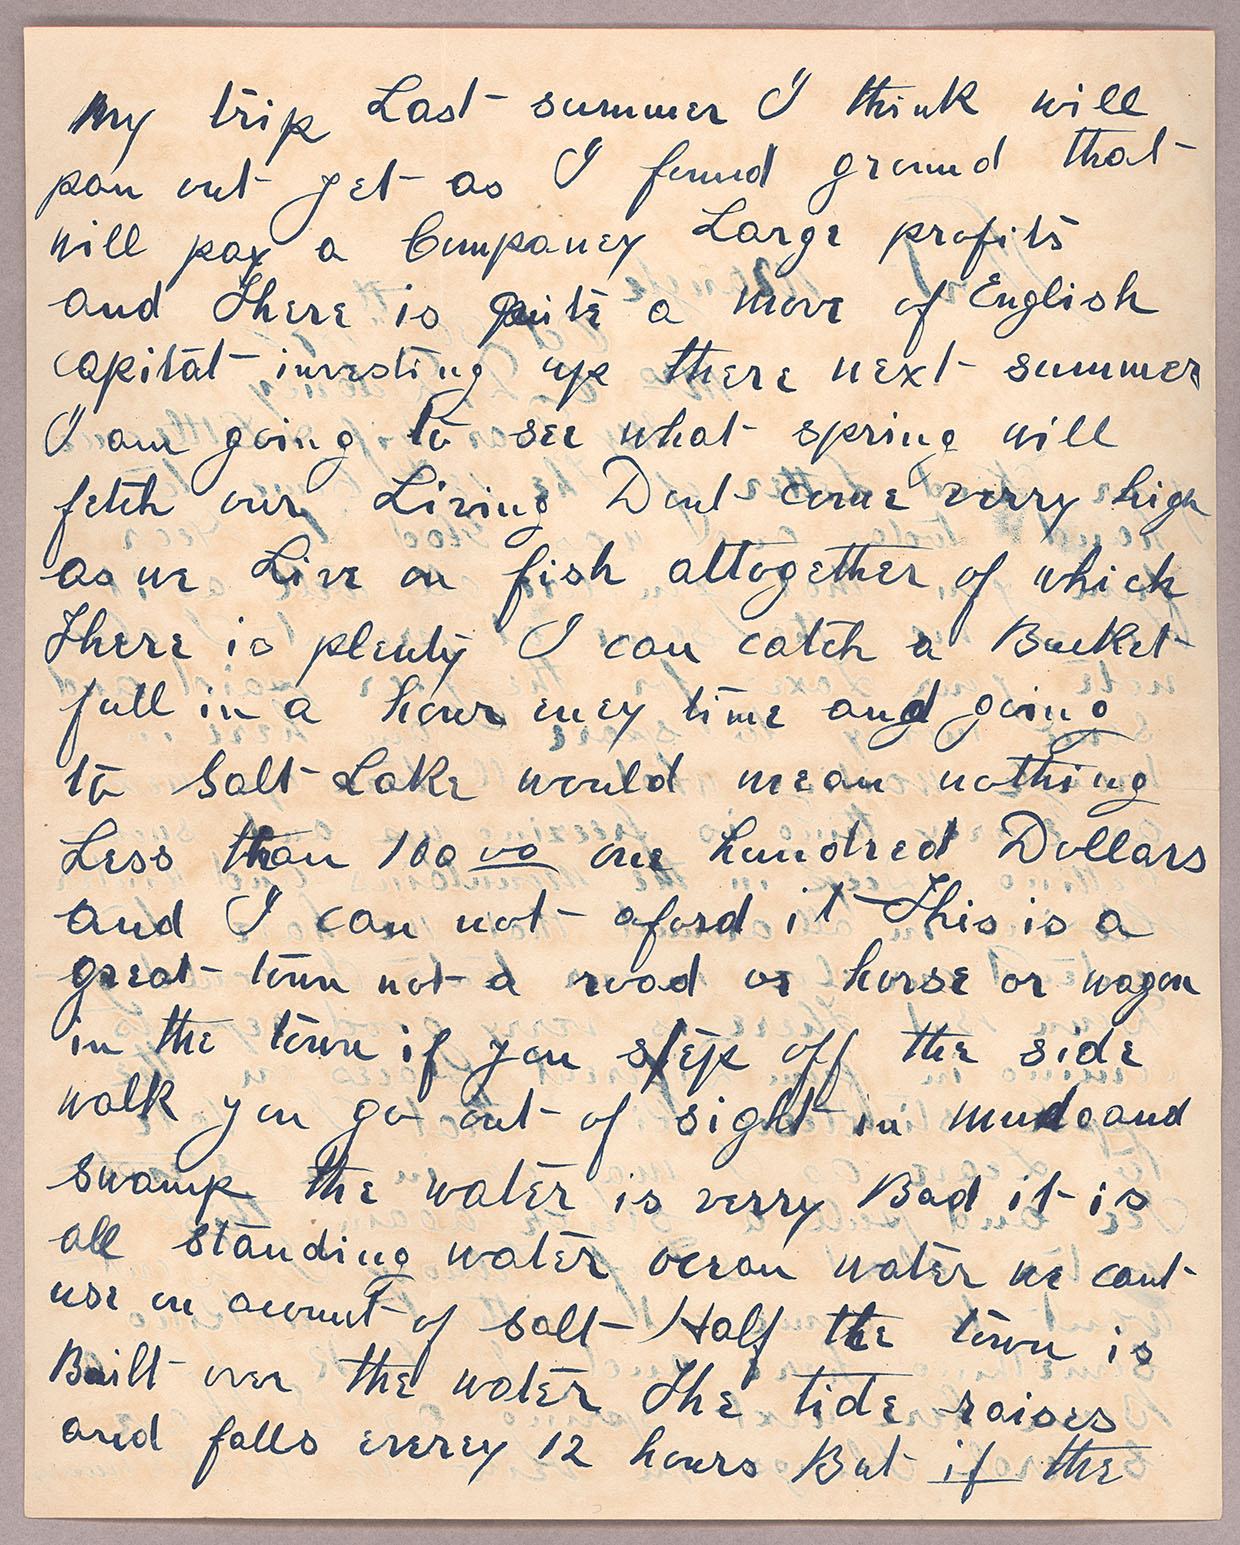 My trip Last summer I think will
pan out yet as I found ground that
will pay a Compainey Large profits
and There is quite a move of English
capital investing up there next summer
I am going to see what spring will
fetch our Living Dont come verry high
as we Live on fish alltogether of which
There is plenty I can catch a Bucket
full in a hour eney time and going
to Salt Lake would mean nothing
Less than 100 00 one hundred Dollars
and I can not aford it This is a
great town not a road or horse or wagon
in the town if you step off the side
walk you go out of sight in mud and
swamp the water is verry Bad it is
all standing water ocean water we cant
use on acount of salt Half the town is
Built over the water The tide raises
and falls everey 12 hours But if the